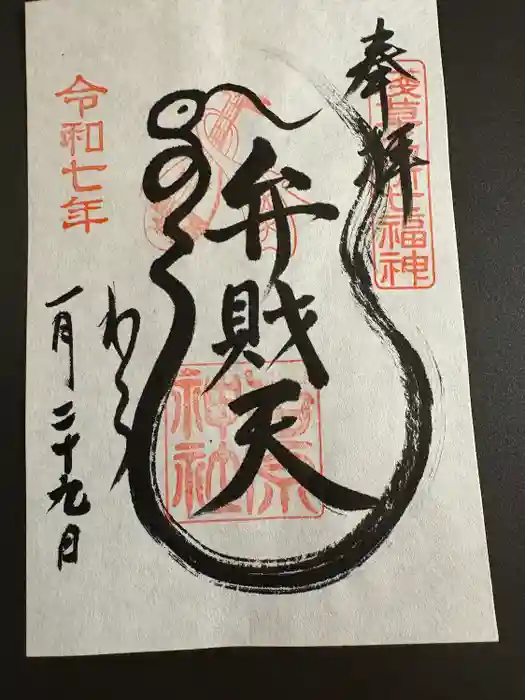 奉拝
淺草名所七福神
弁財天
吉原神社
令和七年
一月二十九日